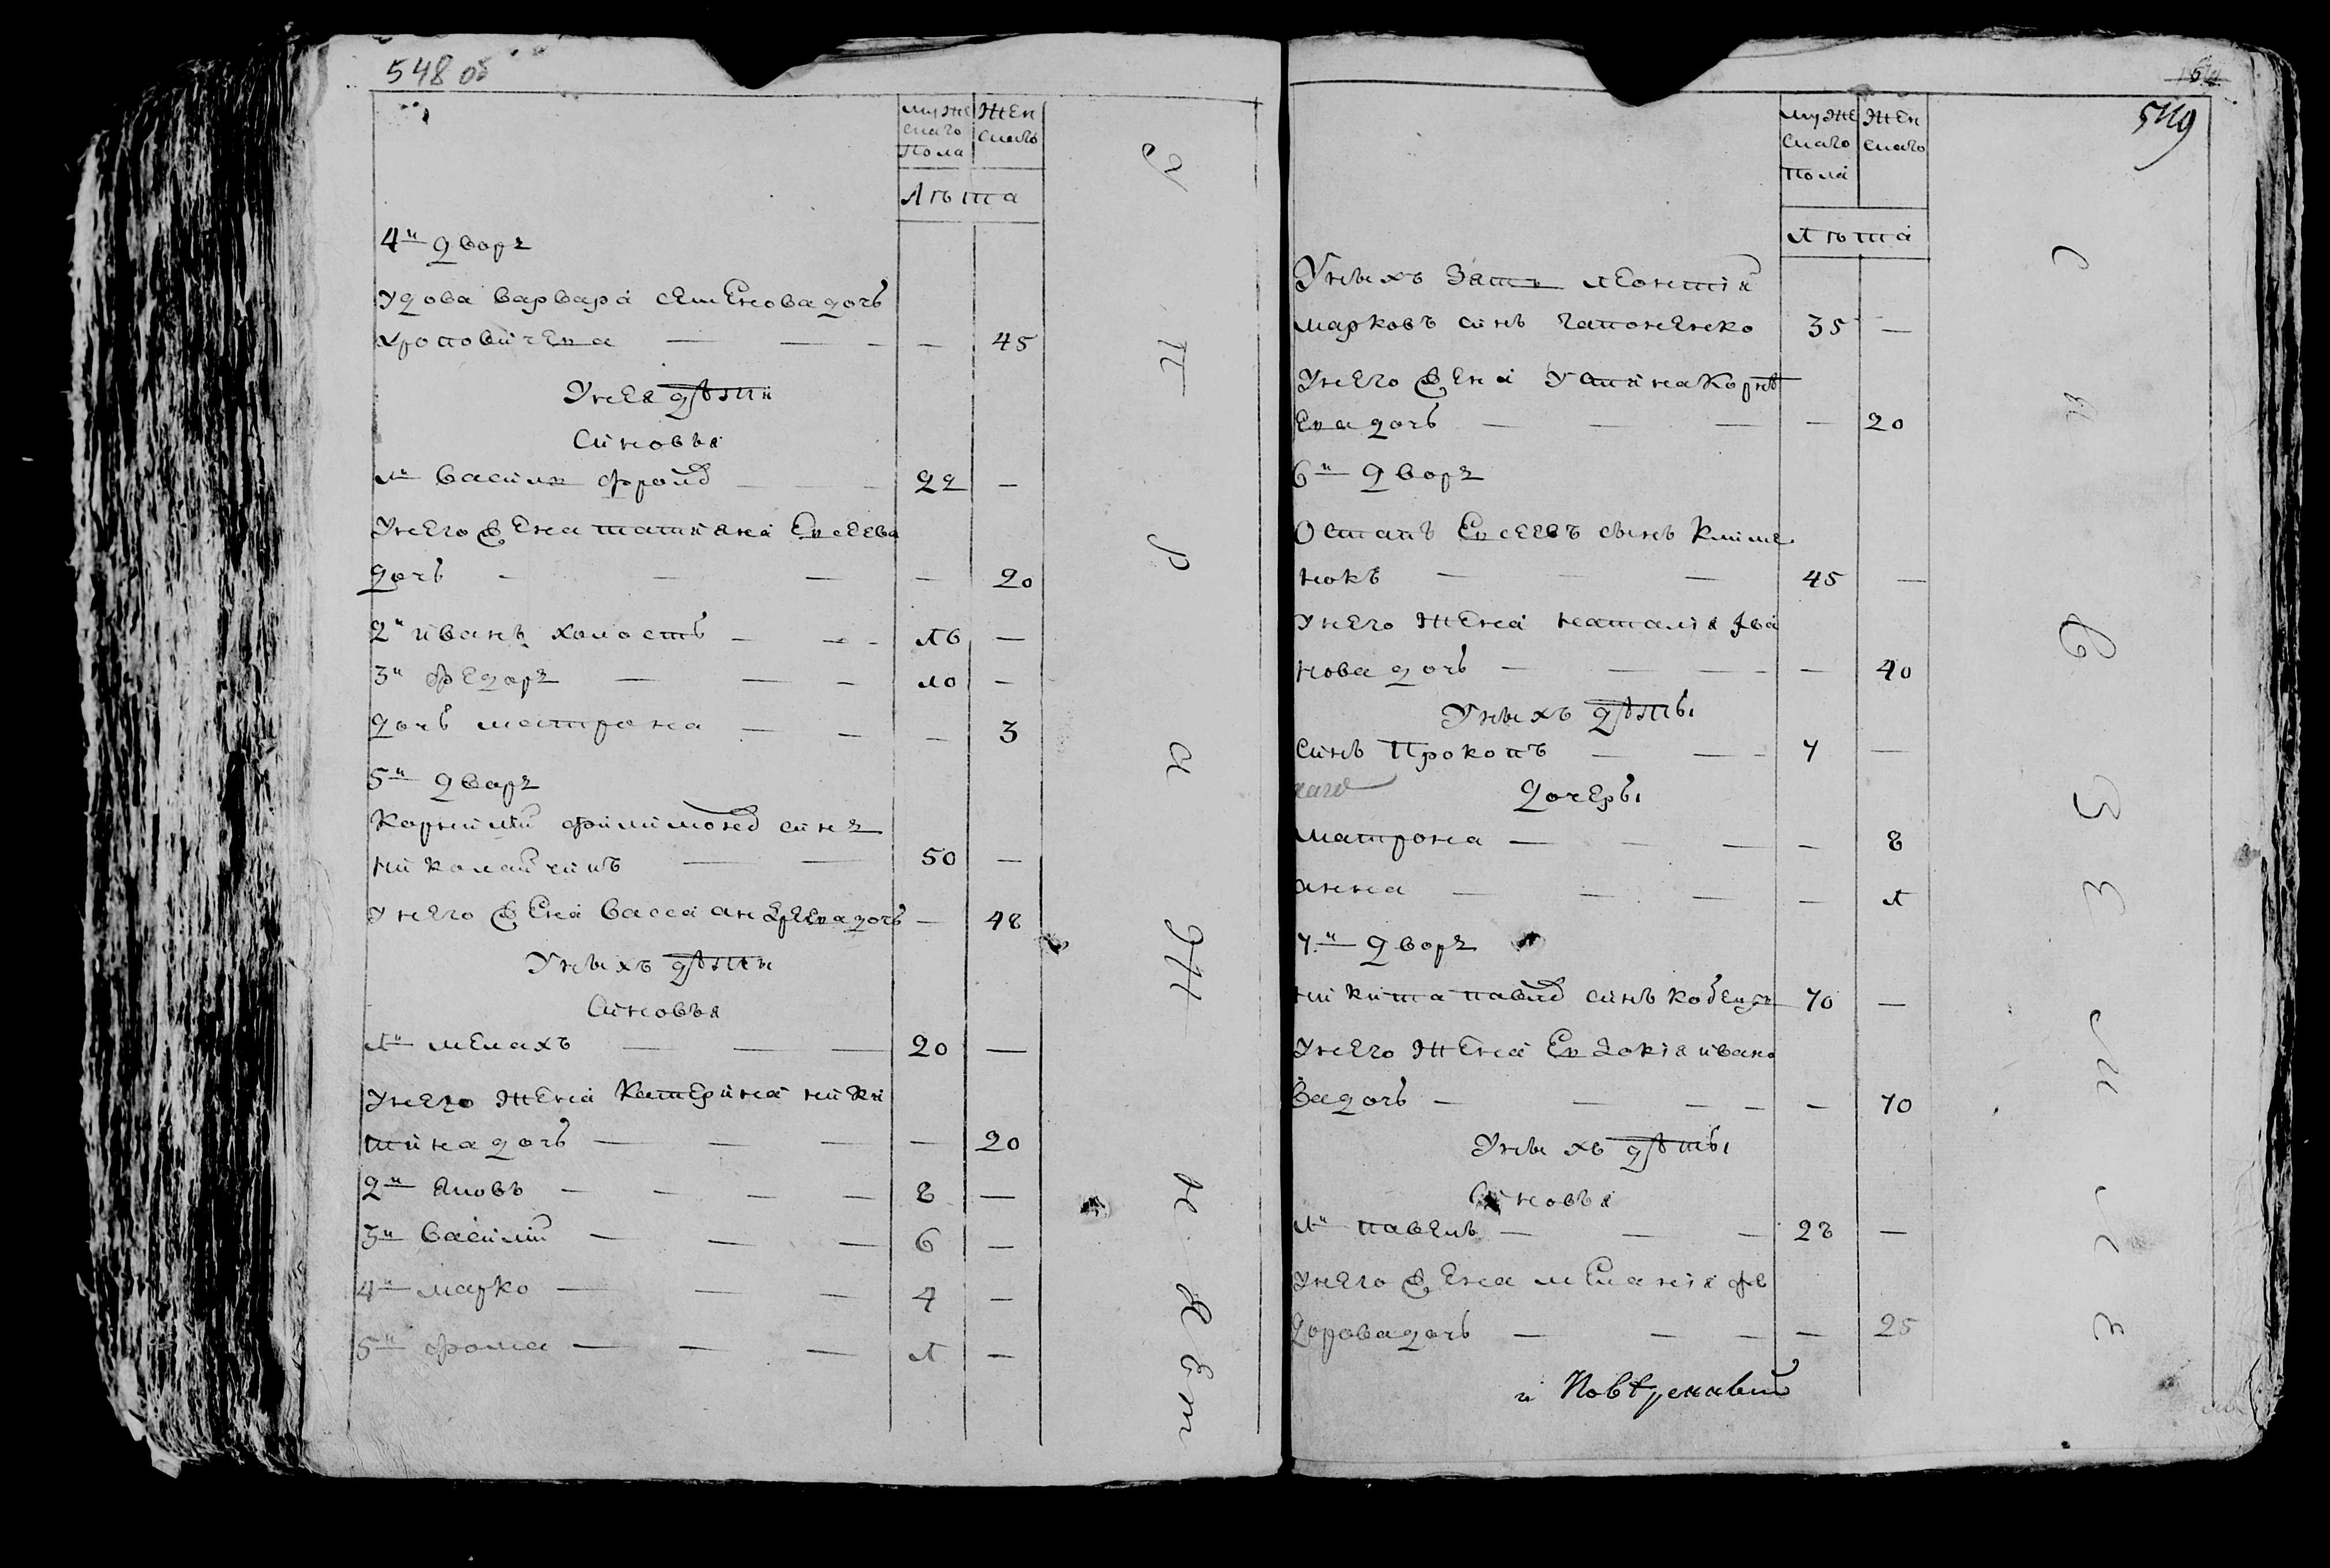 548 об
муже женскаго скаго
пола
Лѣта
4й дворъ
Удова варвара семенова дочъ
хроповичева — — — — 45
У нея дѣти
Синовья
1й василь — — 22 —
У него жена татияна Евсеева
дочъ — — — — 20
2й иванъ холостъ — — 16 —
3й федоръ — — — 10 —
дочъ матрона — — — 3
5й дворъ
Корнилий филимоновъ синъ
николайчикъ — — 50 —
У него жена васса андреева дочъ — 48
У ныхъ дѣти
Синовья
1й мелахъ — — — 20 —
У него жена катерина ники
тина дочъ — — — — 20
2й яковъ — — — — 8 —
3й василий — — — 6 —
4й марко — — — 4 —
5й фома — — — 1 —
549
муже жен
скаго скаго
пола
лѣта
У ныхъ зать леонтій
марковъ синъ гапоненко 35 —
У него жена устина корнѣ
ева дочъ — — — — 20
6й дворъ
Остапъ Евсеевъ сынъ климе
нокъ — — — 45 —
У него жена наталія ива
нова дочъ — — — — 40
У ныхъ дѣты
синъ Прокопъ — — 7 —
дочеры
матрона — — — — 8
анна — — — — 1
7й дворъ
никита павловъ синъ 70 —
У него жена Евдокія ивано
ва дочъ — — — — 70
У ныхъ дѣты
Синовья
1й павелъ — — — 28 —
У него жена меланія фе
дорова дочъ — — — — 25